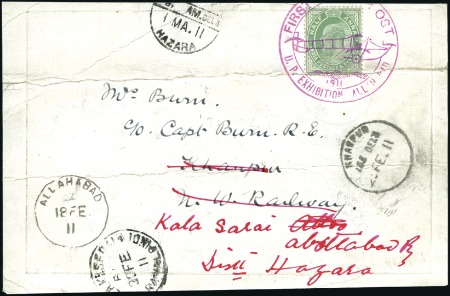 AM. DELY
1 MA. 11
HAZARA
FIRST POST
HALF ANNA
U.P. EXHIBITION ALLAHABAD
1911
Mrs Burn.
C/o Capt Burn. R.E.
Khanpur
N. W. Railway.
Kala Sarai
abottabad
Distt Hazara
ALLAHABAD
18 FE.
11
KHANPUR
FE. 11
FE
11